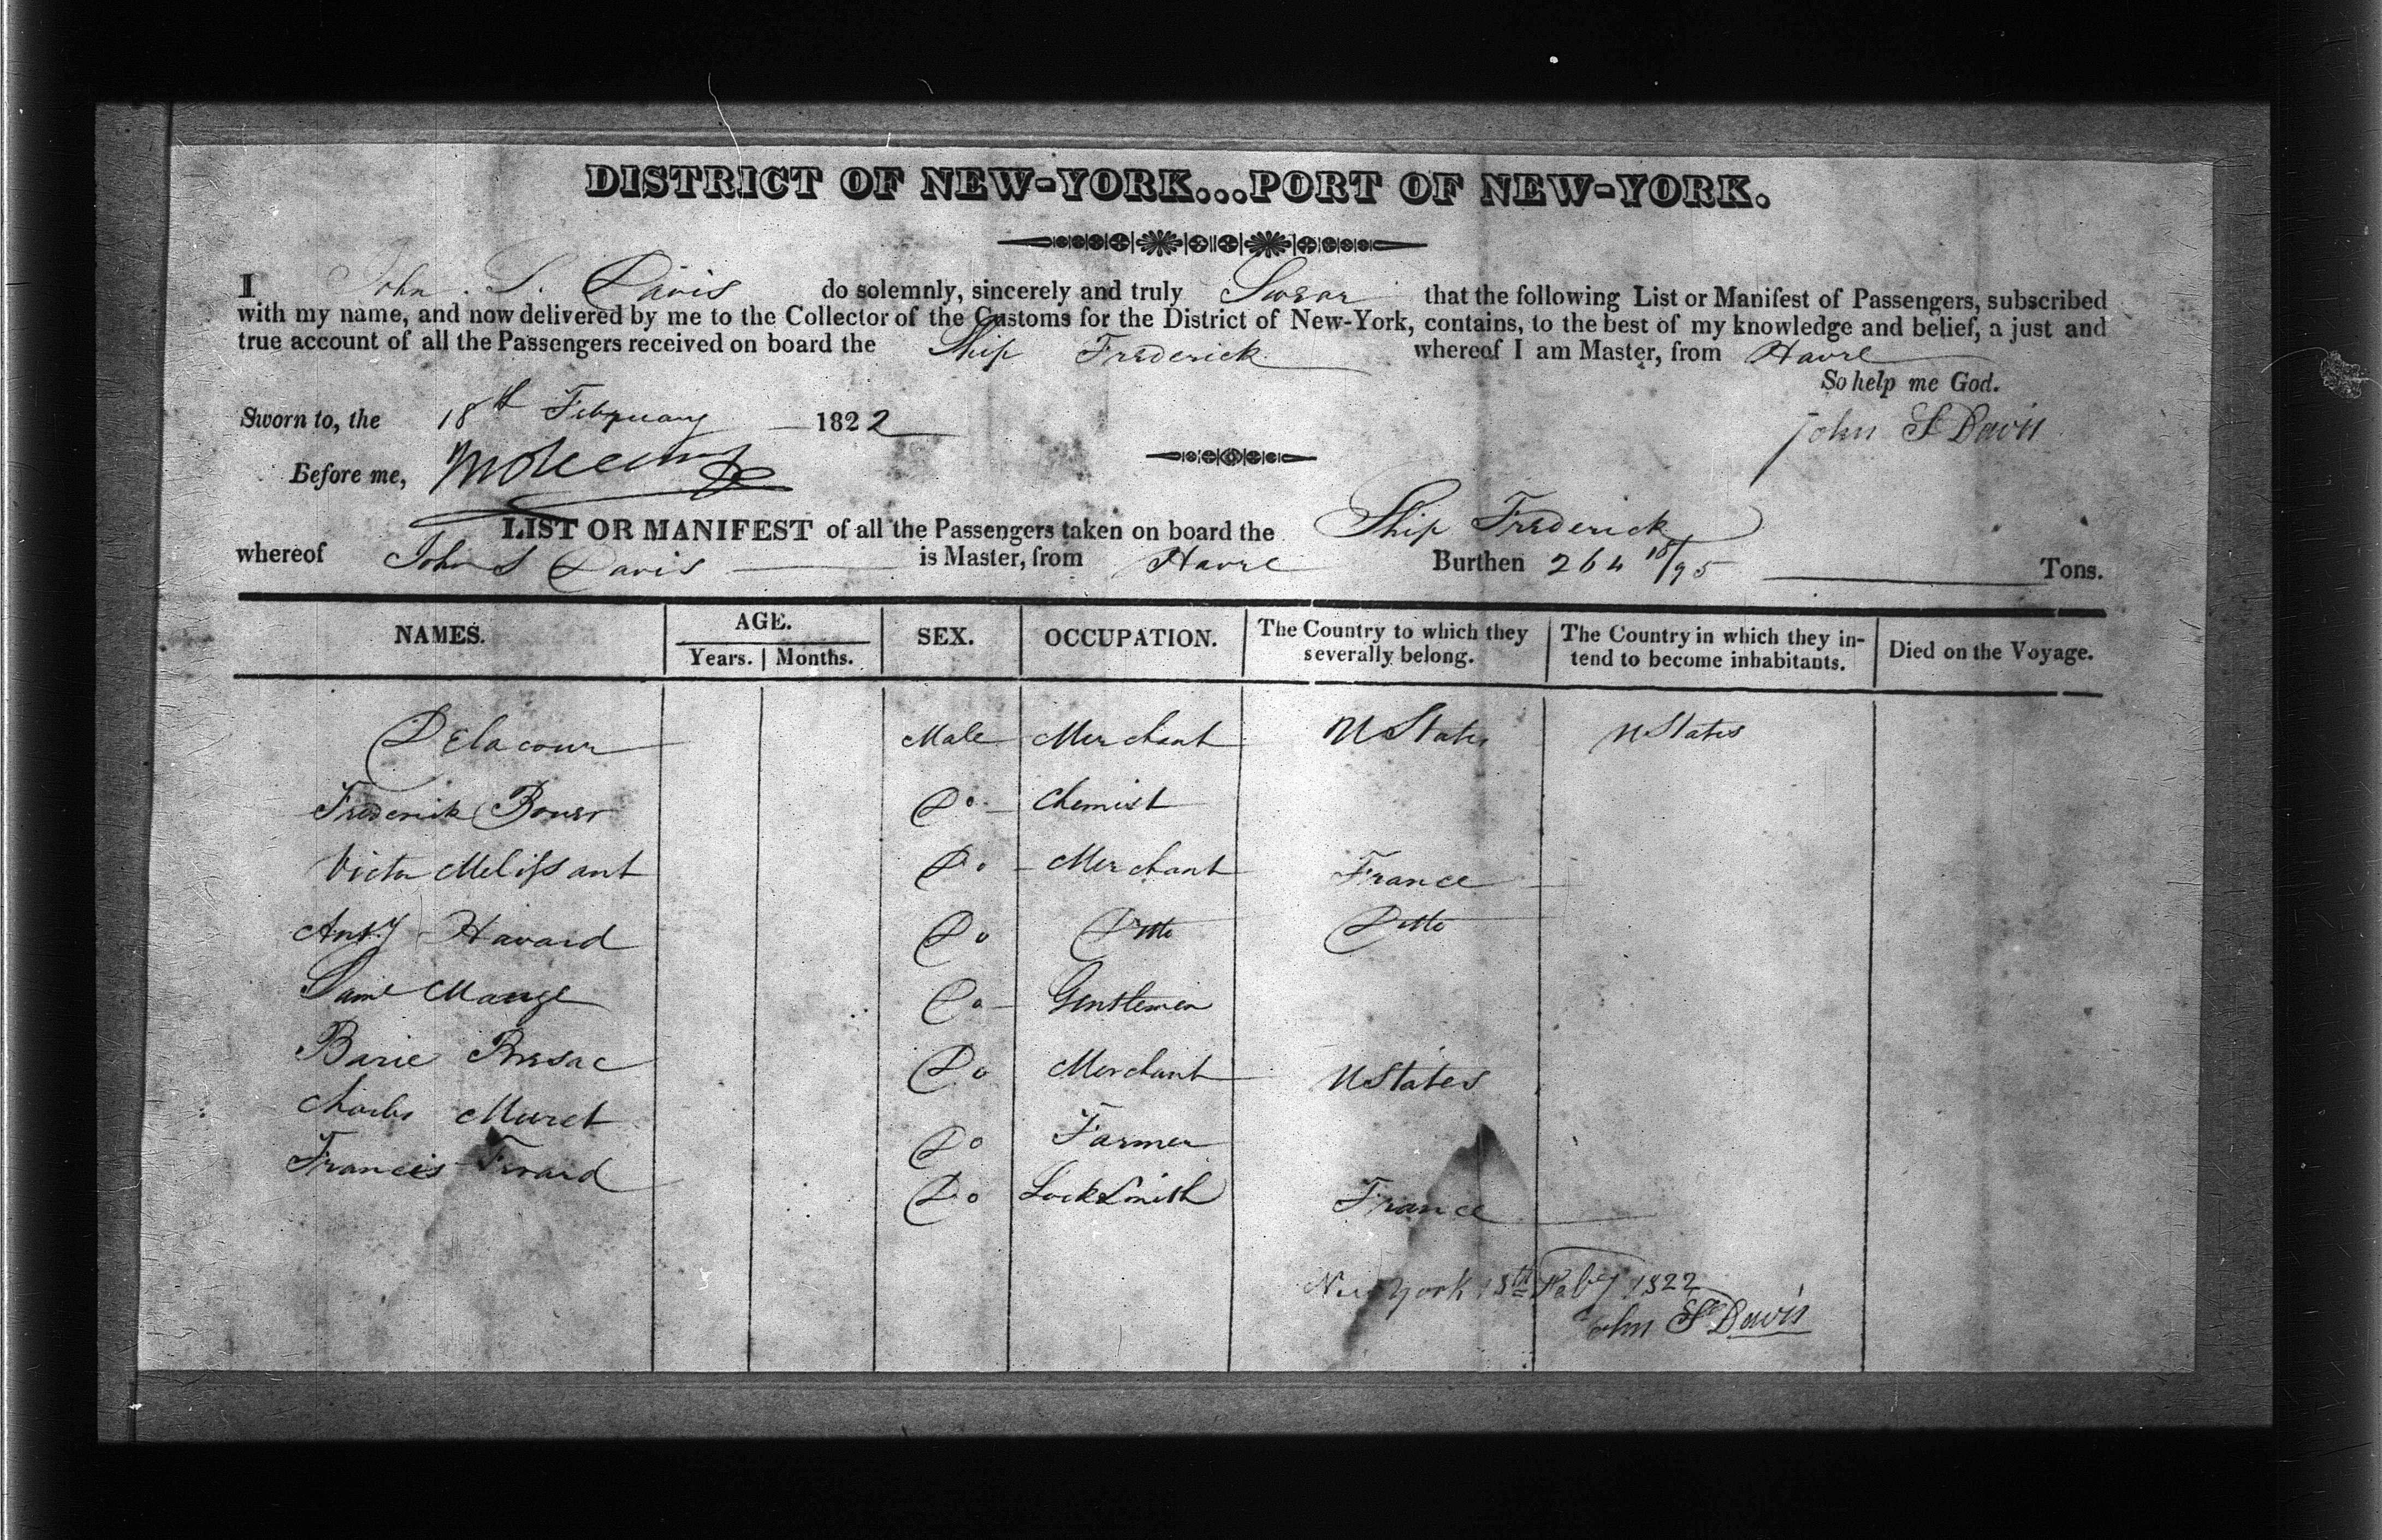 DISTRICT OF NEW-YORK...PORT OF NEW-YORK.
I John S. Davis do solemnly, sincerely and truly Swear that the following List or Manifest of Passengers, subscribed
with my name, and now delivered by me to the Collector of the Customs for the District of New-York, contains, to the best of my knowledge and belief, a just and
true account of all the Passengers received on board the Ship Frederick whereof I am Master, from Havre
So help me God.
Sworn to, the 18th February 1822
John S Davis
Before me,
LIST OR MANIFEST of all the Passengers taken on board the Ship Frederick
whereof John S Davis is Master, from Havre Burthen 264 18/95 Tons.
NAMES. AGE. SEX. OCCUPATION. The Country to which they severally belong. The Country in which they intend to become inhabitants. Died on the Voyage.
Years. Months.
Delacour Male Merchant U States U States
Frederik Do Chemist
Victor Melissant Do Merchant France
Anty Havard Do Ditto Ditto
Saml Mange Do Gentlemen
Do Merchant U States
Charles Muret Do Farmer
Francis Do Lock Smith France
New York 18th Feby 1822
John S Davis